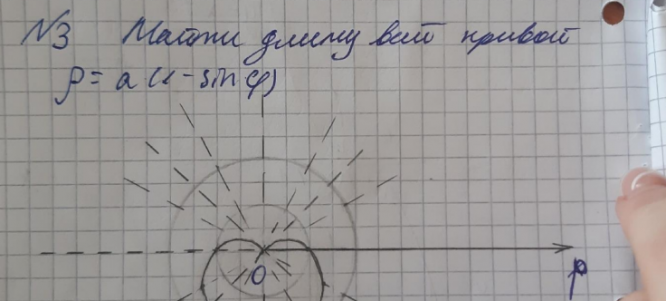 N3 Найти длину всей кривой
ρ = a(1-sin φ)
O
ρ